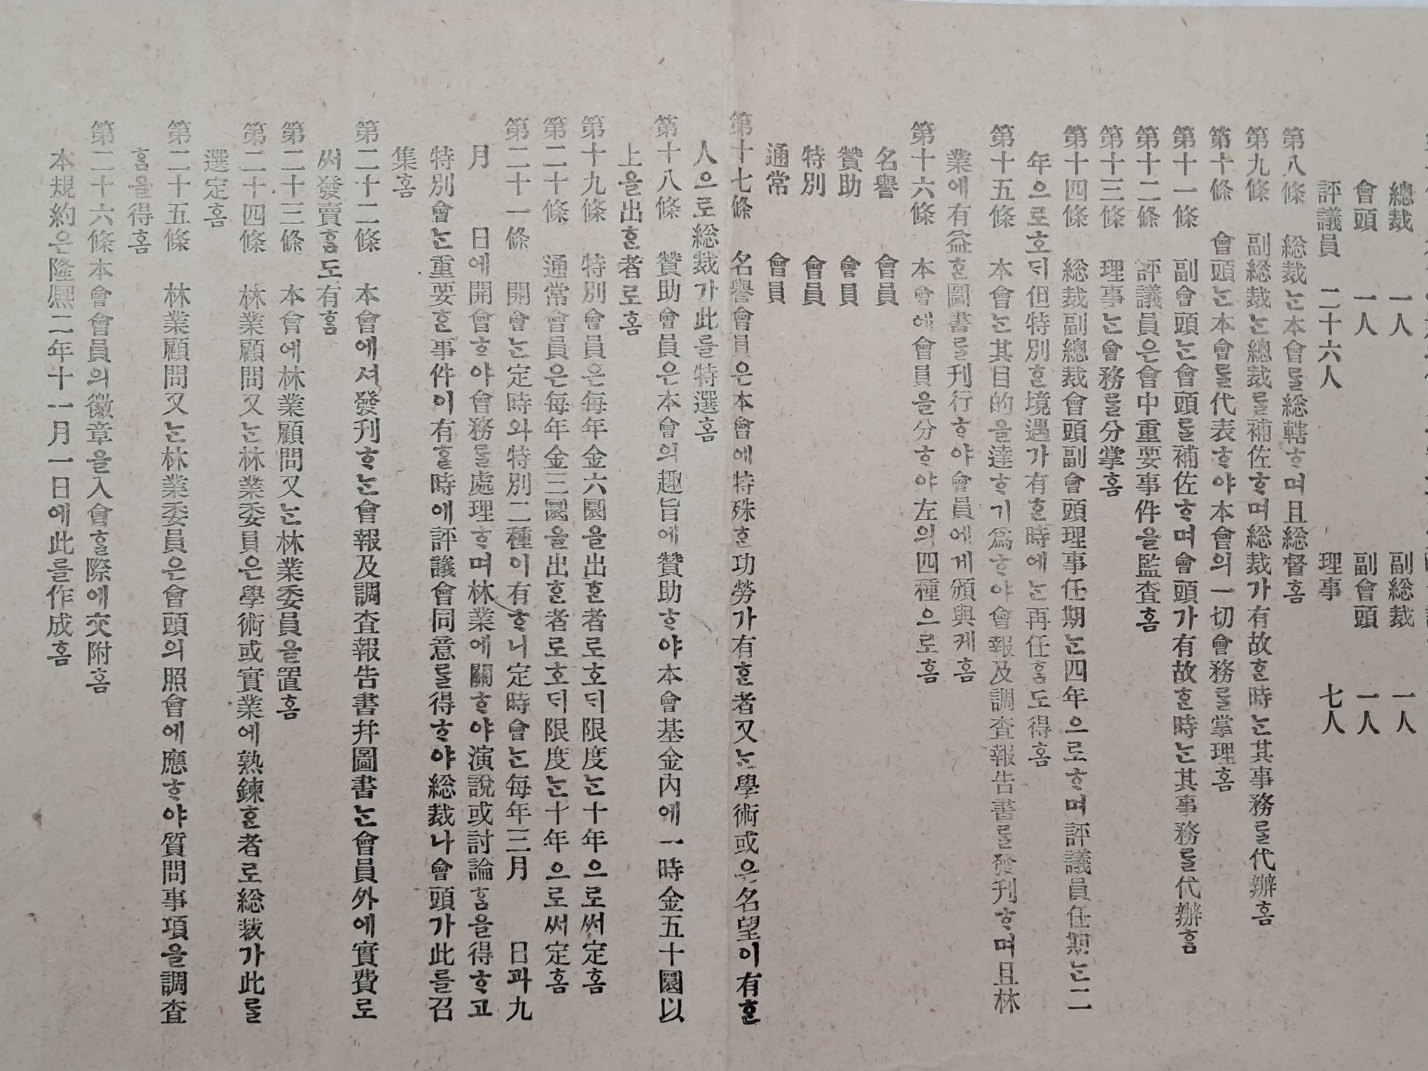 總裁 一人 副總裁 一人
會頭 一人 副會頭 一人
評議員 二十六人 理事 七人
第八條 總裁ᄂᆞᆫ本會ᄅᆞᆯ總轄ᄒᆞ며且總督홈
第九條 副總裁ᄂᆞᆫ總裁ᄅᆞᆯ補佐ᄒᆞ며總裁가有故ᄒᆞᆫ時ᄂᆞᆫ其事務ᄅᆞᆯ代辦홈
第十條 會頭ᄂᆞᆫ本會ᄅᆞᆯ代表ᄒᆞ야本會의一切會務ᄅᆞᆯ掌理홈
第十一條 副會頭ᄂᆞᆫ會頭ᄅᆞᆯ補佐ᄒᆞ며會頭가有故ᄒᆞᆫ時ᄂᆞᆫ其事務ᄅᆞᆯ代辦홈
第十二條 評議員은會中重要事件을監査홈
第十三條 理事ᄂᆞᆫ會務ᄅᆞᆯ分掌홈
第十四條 總裁副總裁會頭副會頭理事任期ᄂᆞᆫ四年으로ᄒᆞ며評議員任期ᄂᆞᆫ二
年으로호ᄃᆡ但特別ᄒᆞᆫ境遇가有ᄒᆞᆫ時에ᄂᆞᆫ再任홈도得홈
第十五條 本會ᄂᆞᆫ其目的을達ᄒᆞ기爲ᄒᆞ야會報及調査報告書ᄅᆞᆯ發刊ᄒᆞ며且林
業에有益ᄒᆞᆫ圖書ᄅᆞᆯ刊行ᄒᆞ야會員에게頒與케홈
第十六條 本會에會員을分ᄒᆞ야左의四種으로홈
名譽 會員
贊助 會員
特別 會員
通常 會員
第十七條 名譽會員은本會에特殊ᄒᆞᆫ功勞가有ᄒᆞᆫ者又ᄂᆞᆫ學術或은名望이有ᄒᆞᆫ
人으로總裁가此ᄅᆞᆯ特選홈
第十八條 贊助會員은本會의趣旨에贊助ᄒᆞ야本會基金內에一時金五十圜以
上을出ᄒᆞᆫ者로홈
第十九條 特別會員은每年金六圜을出ᄒᆞᆫ者로호ᄃᆡ限度ᄂᆞᆫ十年으로써定홈
第二十條 通常會員은每年金三圜을出ᄒᆞᆫ者로호ᄃᆡ限度ᄂᆞᆫ十年으로써定홈
第二十一條 開會ᄂᆞᆫ定時와特別二種이有ᄒᆞ니定時會ᄂᆞᆫ每年三月 日과九
月 日에開會ᄒᆞ야會務ᄅᆞᆯ處理ᄒᆞ며林業에關ᄒᆞ야演說或討論홈을得ᄒᆞ고
特別會ᄂᆞᆫ重要ᄒᆞᆫ事件이有ᄒᆞᆯ時에評議會同意ᄅᆞᆯ得ᄒᆞ야總裁나會頭가此를召
集홈
第二十二條 本會에셔發刊ᄒᆞᄂᆞᆫ會報及調査報告書幷圖書ᄂᆞᆫ會員外에實費로
써發賣홈도有홈
第二十三條 本會에林業顧問又ᄂᆞᆫ林業委員을置홈
第二十四條 林業顧問又ᄂᆞᆫ林業委員은學術或實業에熟鍊ᄒᆞᆫ者로總裁가此ᄅᆞᆯ
選定홈
第二十五條 林業顧問又ᄂᆞᆫ林業委員은會頭의照會에應ᄒᆞ야質問事項을調査
홈을得홈
第二十六條本會會員의徽章을入會ᄒᆞᆯ際에交附홈
本規約은隆熙二年十一月一日에此를作成홈